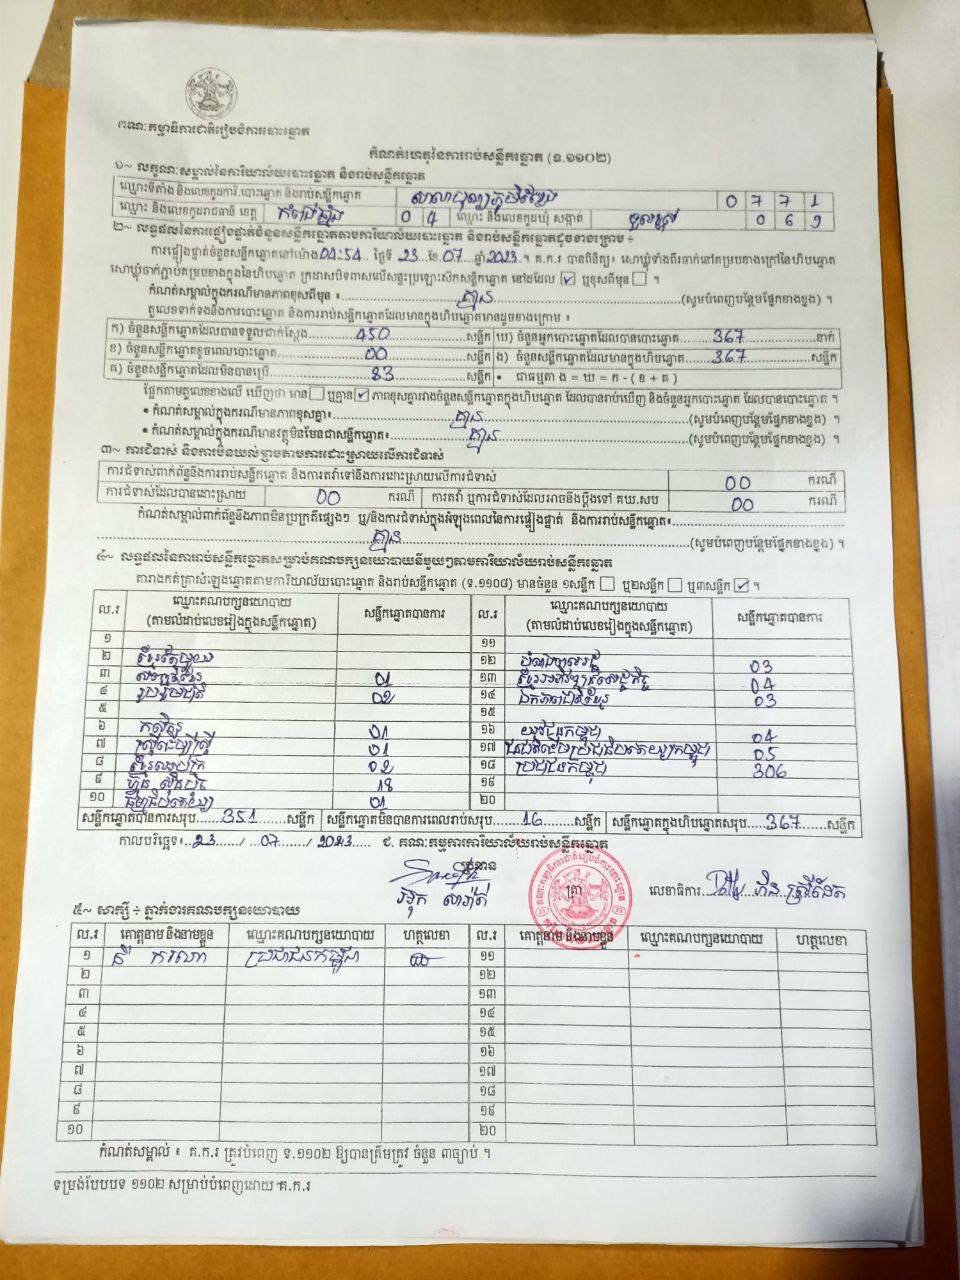 គណៈកម្មាធិការជាតិរៀបចំការបោះឆ្នោត
កំណត់ហេតុនៃការរាប់សន្លឹកឆ្នោត (ទ.១១០២)
១~ លក្ខណៈសម្គាល់នៃការិយាល័យបោះឆ្នោត និងរាប់សន្លឹកឆ្នោត
ឈ្មោះទីតាំង និងលេខកូដការិ.បោះឆ្នោត និងរាប់សន្លឹកឆ្នោត 0 7 7 1
ឈ្មោះ និងលេខកូដរាជធានី ខេត្ត កំពង់ឆ្នាំង 0 4 ឈ្មោះ និងលេខកូដឃុំ សង្កាត់ 0 6 9
២~ លទ្ធផលនៃការផ្ទៀងផ្ទាត់ចំនួនសន្លឹកឆ្នោតតាមការិយាល័យបោះឆ្នោត និងរាប់សន្លឹកឆ្នោតដូចខាងក្រោម ÷
ការផ្ទៀងផ្ទាត់ចំនួនសន្លឹកឆ្នោតនៅម៉ោង 04:54 ថ្ងៃទី 23 ខែ 07 ឆ្នាំ 2023 ។ គ.ក.រ បានពិនិត្យ ៖ សោឃ្លុំទាំងពីរចាក់នៅគម្របខាងក្រៅនៃហិបឆ្នោត
សោឃ្លុំចាក់ភ្ជាប់គម្របខាងក្នុងនៃហិបឆ្នោត ក្រដាសបិទពាសលើសន្ទះប្រឡោះស៊កសន្លឹកឆ្នោត នៅដដែល ☑ ឬខុសពីមុន ☐ ។
កំណត់សម្គាល់ក្នុងករណីមានភាពខុសពីមុន ៖ គ្មាន (សូមបំពេញបន្ថែមផ្នែកខាងខ្នង) ។
តួលេខទាក់ទងនឹងការបោះឆ្នោត និងការរាប់សន្លឹកឆ្នោតដែលមានក្នុងហិបឆ្នោតមានដូចខាងក្រោម ៖
ក) ចំនួនសន្លឹកឆ្នោតដែលបានទទួលជាក់ស្តែង 450 សន្លឹក ឃ) ចំនួនអ្នកបោះឆ្នោតដែលបានបោះឆ្នោត 367 នាក់
ខ) ចំនួនសន្លឹកឆ្នោតខូចពេលបោះឆ្នោត 00 សន្លឹក ង) ចំនួនសន្លឹកឆ្នោតដែលមានក្នុងហិបឆ្នោត 367 សន្លឹក
គ) ចំនួនសន្លឹកឆ្នោតដែលមិនបានប្រើ 83 សន្លឹក • ជាធម្មតា ង = ឃ = ក - ( ខ + គ )
ផ្អែកតាមតួលេខខាងលើ ឃើញថា មាន ☐ ឬគ្មាន ☑ ភាពខុសគ្នារវាងចំនួនសន្លឹកឆ្នោតក្នុងហិបឆ្នោត ដែលបានរាប់ឃើញ និងចំនួនអ្នកបោះឆ្នោត ដែលបានបោះឆ្នោត ។
• កំណត់សម្គាល់ក្នុងករណីមានភាពខុសគ្នា៖ គ្មាន (សូមបំពេញបន្ថែមផ្នែកខាងខ្នង) ។
• កំណត់សម្គាល់ក្នុងករណីមានវត្ថុមិនមែនជាសន្លឹកឆ្នោត៖ គ្មាន (សូមបំពេញបន្ថែមផ្នែកខាងខ្នង) ។
៣~ ការជំទាស់ និងការមិនយល់ព្រមតាមការដោះស្រាយលើការជំទាស់
ការជំទាស់ពាក់ព័ន្ធនឹងការរាប់សន្លឹកឆ្នោត និងការតវ៉ាទៅនឹងការដោះស្រាយលើការជំទាស់ 00 ករណី
ការជំទាស់ដែលបានដោះស្រាយ 00 ករណី ការតវ៉ា ឬការជំទាស់ដែលអាចនឹងប្តឹងទៅ គឃ.សប 00 ករណី
កំណត់សម្គាល់ពាក់ព័ន្ធនឹងភាពមិនប្រក្រតីផ្សេងៗ ឬ/និងការជំទាស់ក្នុងអំឡុងពេលនៃការផ្ទៀងផ្ទាត់ និងការរាប់សន្លឹកឆ្នោត៖
គ្មាន (សូមបំពេញបន្ថែមផ្នែកខាងខ្នង) ។
៤~ លទ្ធផលនៃការរាប់សន្លឹកឆ្នោតសម្រាប់គណបក្សនយោបាយនីមួយៗតាមការិយាល័យរាប់សន្លឹកឆ្នោត
តារាងកត់ត្រាសំឡេងឆ្នោតតាមការិយាល័យបោះឆ្នោត និងរាប់សន្លឹកឆ្នោត (ទ.១១០៨) មានចំនួន ១សន្លឹក ☐ ឬ២សន្លឹក ☐ ឬ៣សន្លឹក ☑ ។
ល.រ ឈ្មោះគណបក្សនយោបាយ (តាមលំដាប់លេខរៀងក្នុងសន្លឹកឆ្នោត) សន្លឹកឆ្នោតបានការ ល.រ ឈ្មោះគណបក្សនយោបាយ (តាមលំដាប់លេខរៀងក្នុងសន្លឹកឆ្នោត) សន្លឹកឆ្នោតបានការ
១ ១១
២ ខ្មែរតែមួយ ១២ 03
៣ 01 ១៣ ខ្មែរអភិវឌ្ឍន៍សេដ្ឋកិច្ច 04
៤ 02 ១៤ ឯកភាពជាតិខ្មែរ 03
៥ ១៥
៦ កសិករ 01 ១៦ យុវជនកម្ពុជា 04
៧ ស្ត្រីដើម្បីស្ត្រី 01 ១៧ 05
៨ 02 ១៨ ប្រជាជនកម្ពុជា 306
៩ ហ៊្វុនស៊ិនប៉ិច 18 ១៩
១០ ធម្មាធិបតេយ្យ 01 ២០
សន្លឹកឆ្នោតបានការសរុប 351 សន្លឹក សន្លឹកឆ្នោតមិនបានការពេលរាប់សរុប 16 សន្លឹក សន្លឹកឆ្នោតក្នុងហិបឆ្នោតសរុប 367 សន្លឹក
កាលបរិច្ឆេទ៖ 23 / 07 / 2023 ជ. គណៈកម្មការការិយាល័យរាប់សន្លឹកឆ្នោត
ប្រធាន
ត្រា
លេខាធិការ
៥~ សាក្សី ÷ ភ្នាក់ងារគណបក្សនយោបាយ
ល.រ គោត្តនាម និងនាមខ្លួន ឈ្មោះគណបក្សនយោបាយ ហត្ថលេខា ល.រ គោត្តនាម និងនាមខ្លួន ឈ្មោះគណបក្សនយោបាយ ហត្ថលេខា
១ ប្រជាជនកម្ពុជា ១១
២ ១២
៣ ១៣
៤ ១៤
៥ ១៥
៦ ១៦
៧ ១៧
៨ ១៨
៩ ១៩
១០ ២០
កំណត់សម្គាល់ ៖ គ.ក.រ ត្រូវបំពេញ ទ.១១០២ ឱ្យបានត្រឹមត្រូវ ចំនួន ៣ច្បាប់ ។
ទម្រង់បែបបទ ១១០២ សម្រាប់បំពេញដោយ គ.ក.រ